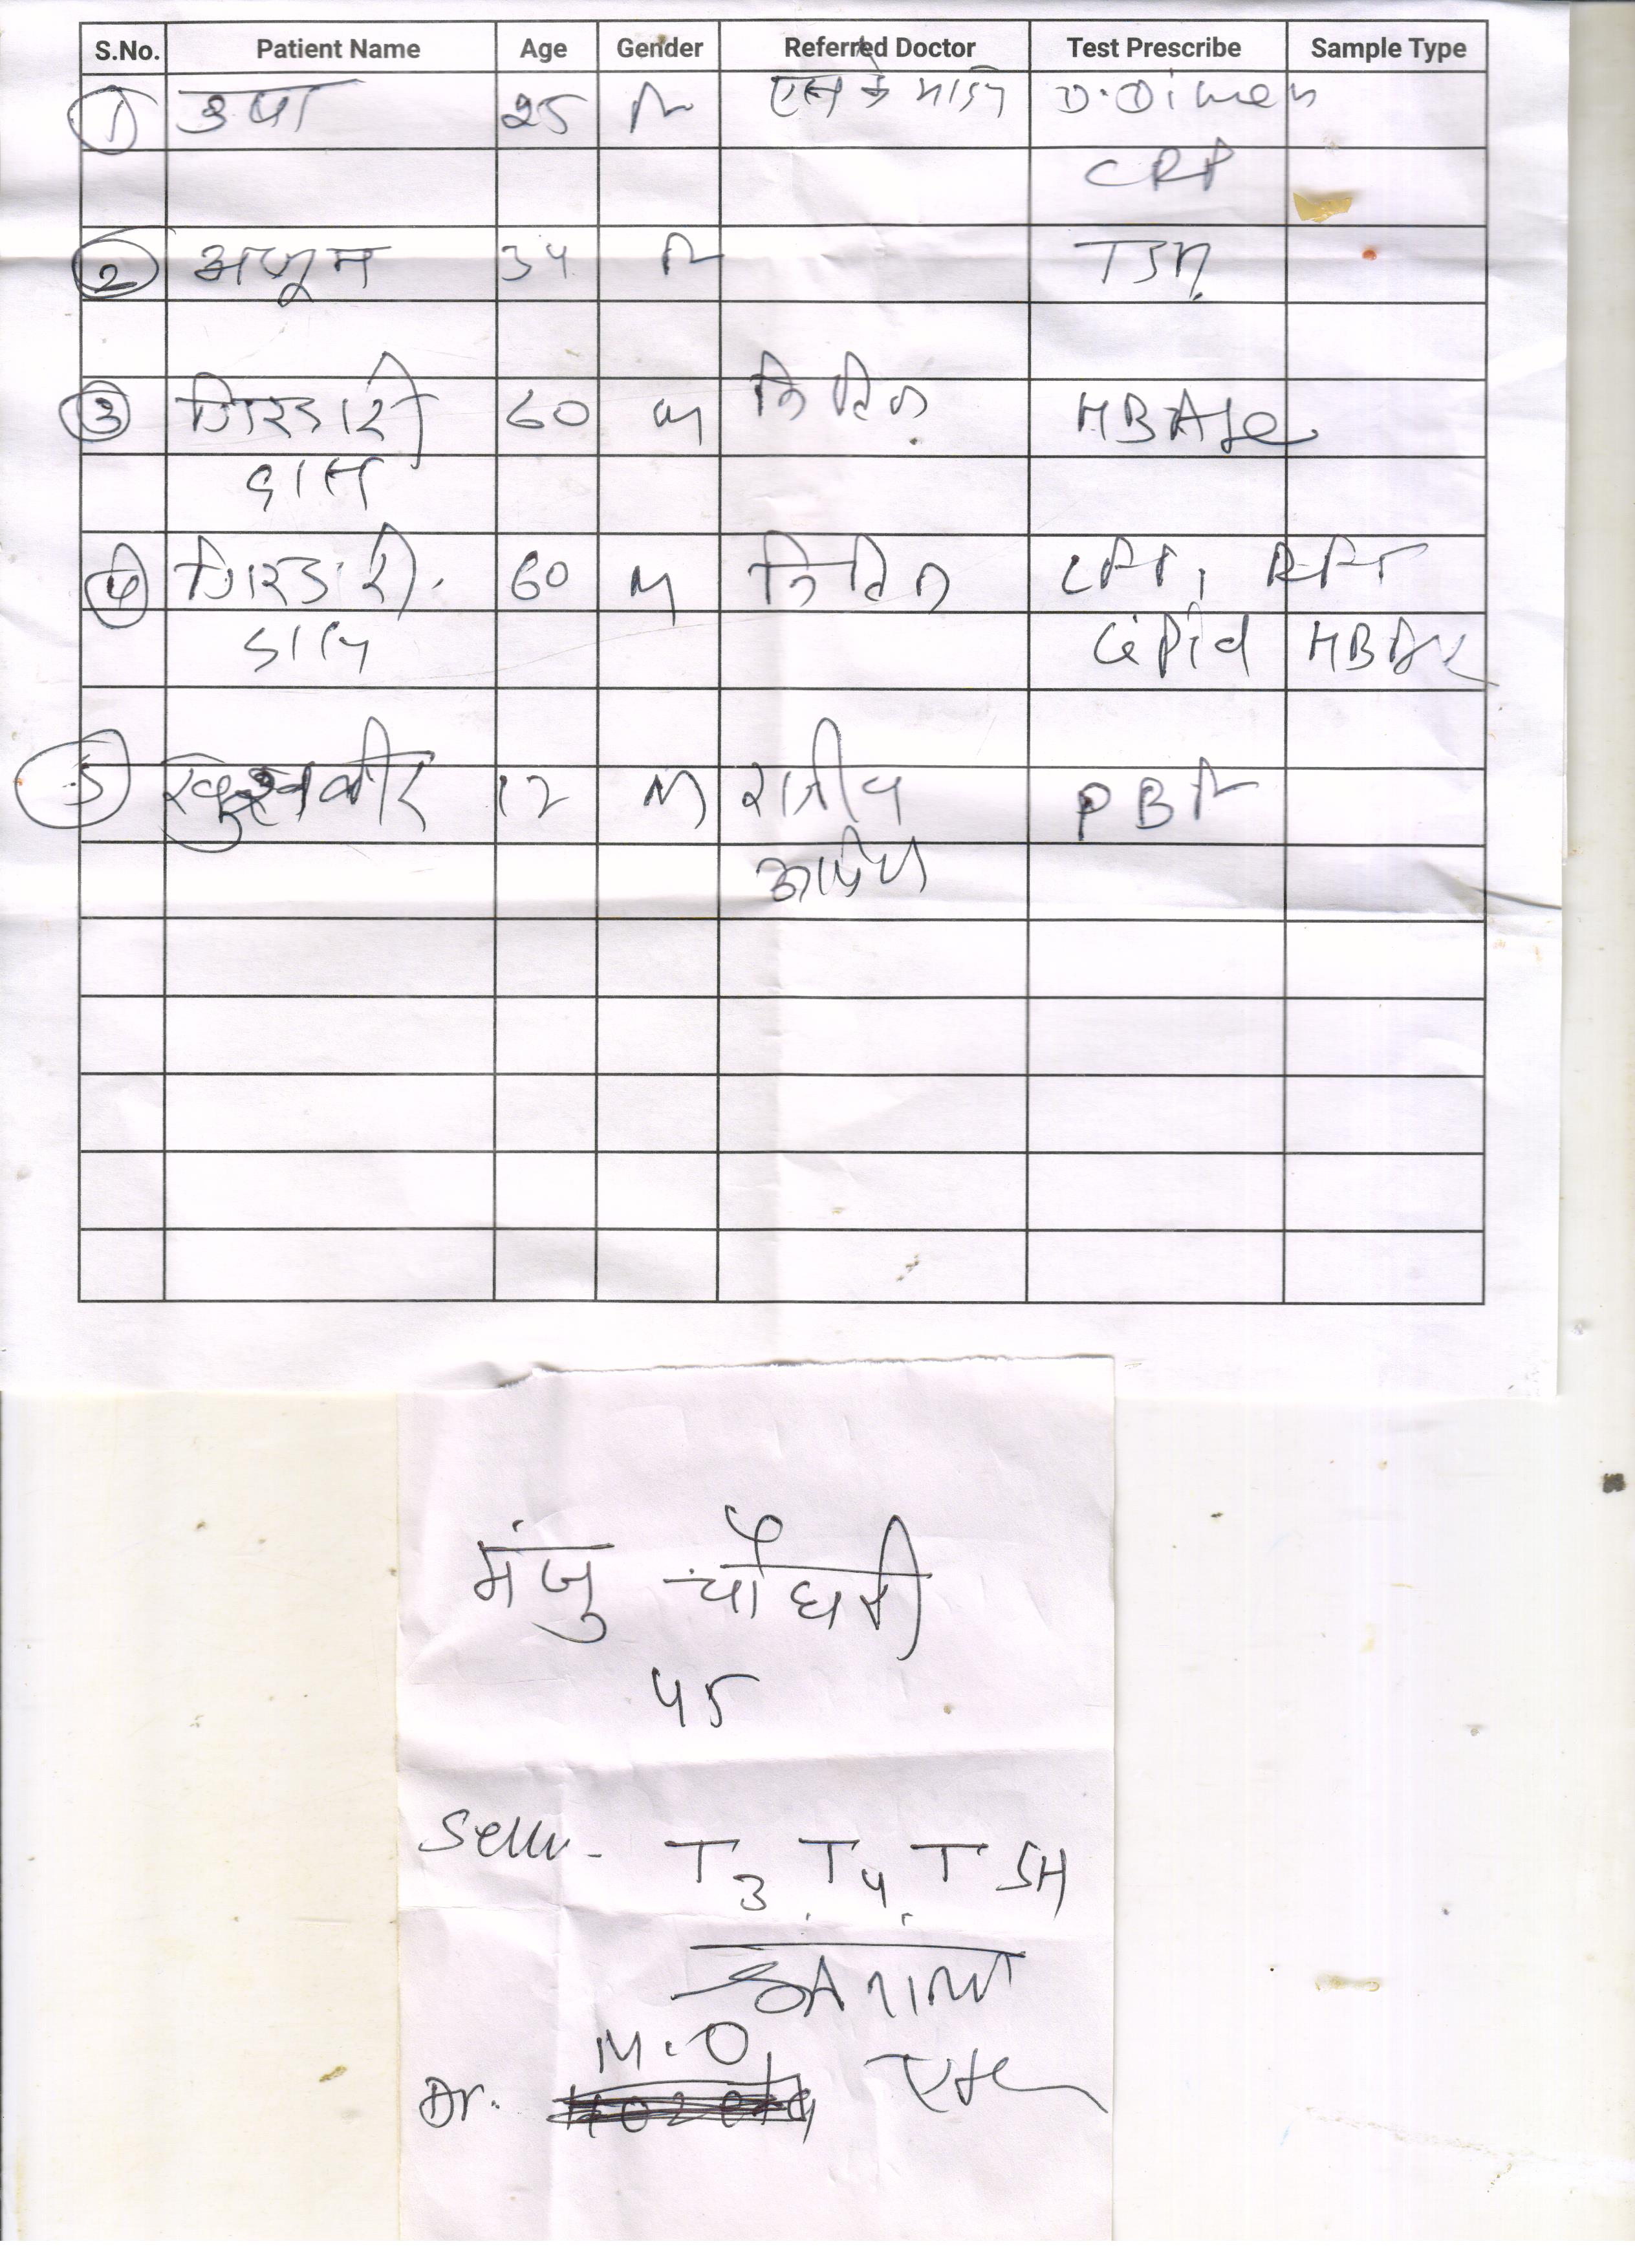 S.No. Patient Name Age Gender Referred Doctor Test Prescribe Sample Type
1 उषा 25 F एस के D.Dimer
CRP
2 अन्जूम 34 F TSH
3 गिरधारी 60 M नितिन HBA1c
दास
4 गिरधारी 60 M नितिन LFT, RFT
Lipid HBA1c
5 12 M राजीव PBF
मंजु चौधरी
45
T3 T4 TSH
M.O
Dr.